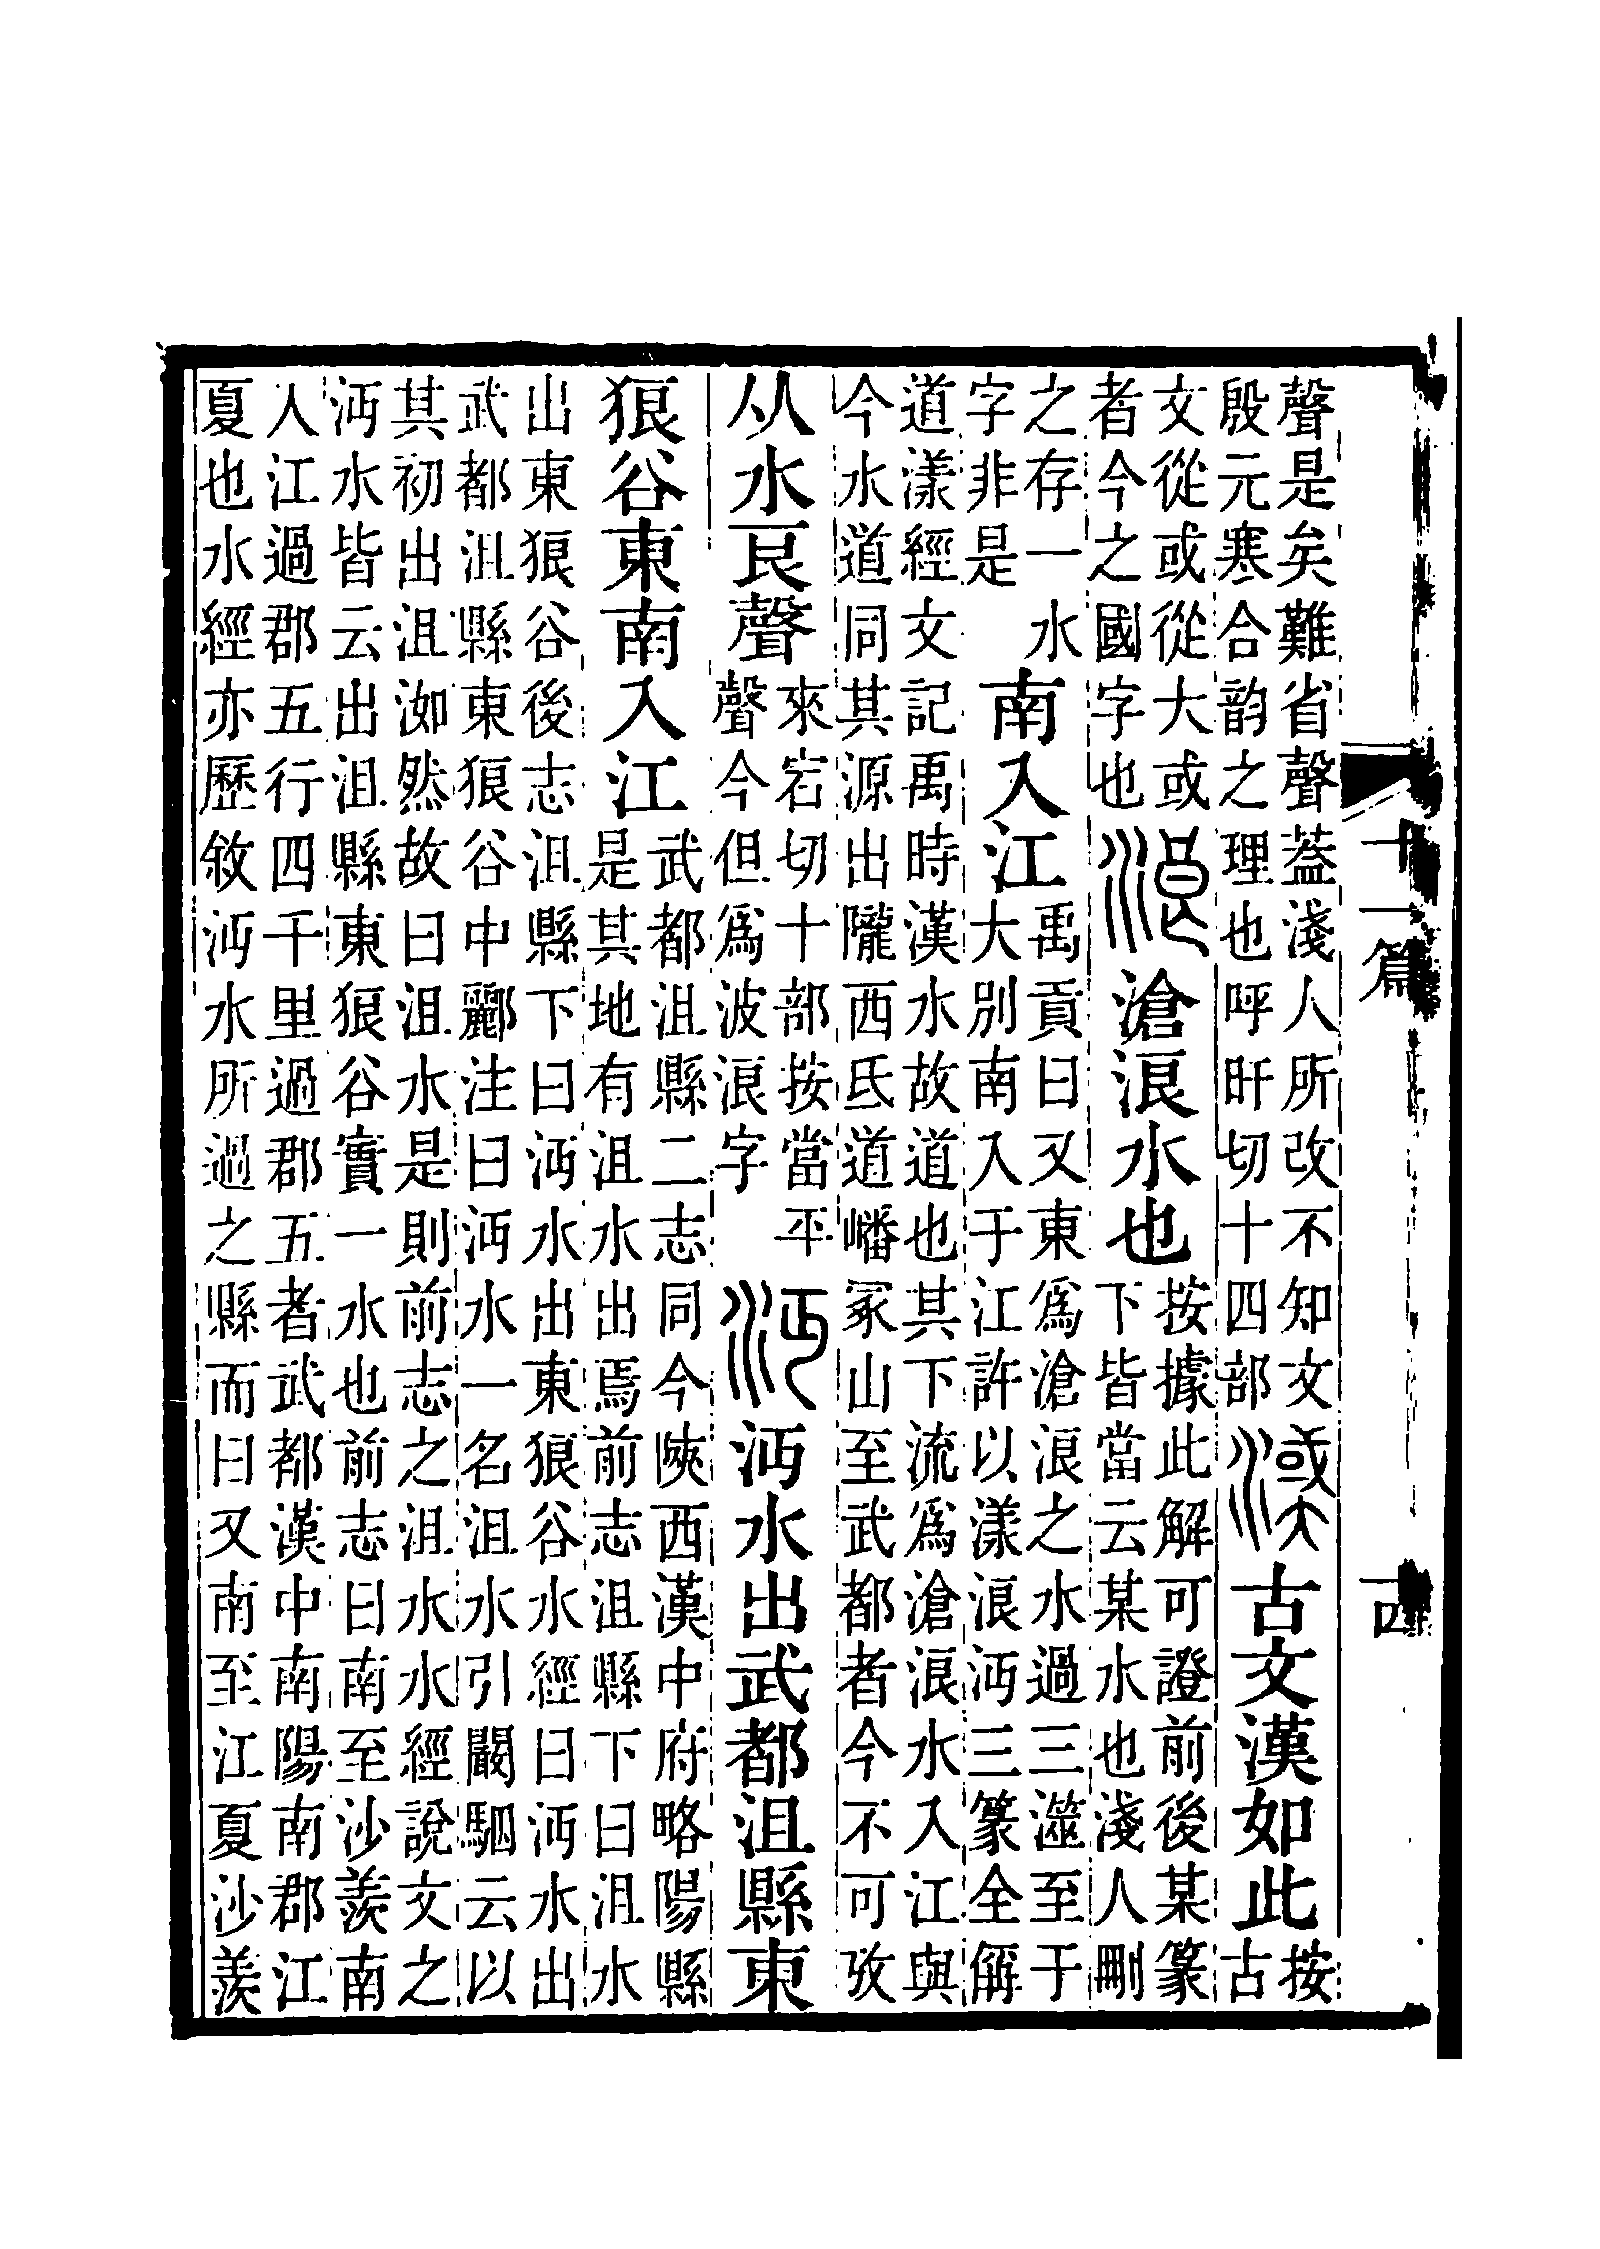 聲是矣難省聲葢淺人所改不知文殷元寒合韵之理也呼旰切十四部㵄古文漢如此按古
文從或從大或者今之國字也浪滄浪水也按據此解可證前後某篆下皆當云某水也淺人刪
之存一水字非是南入江禹貢曰又東爲滄浪之水過三澨至于大別南入于江許以漾浪沔三篆全偁
道漾經文記禹時漢水故道也其下流爲滄浪水入江與今水道同其源出隴西氐道嶓冢山至武都者今不可攷
从水良聲來宕切十部按當平聲今但爲波浪字沔沔水出武都沮縣東
狼谷東南入江武都沮縣二志同今陝西漢中府略陽縣是其地有沮水出焉前志沮縣下曰沮水
出東狼谷後志沮縣下曰沔水出東狼谷水經曰沔水出武都沮縣東狼谷中酈注曰沔水一名沮水引闞駰云以
其初出沮洳然故曰沮水是則前志之沮水水經說文之沔水皆云出沮縣東狼谷實一水也前志曰南至沙羨南
入江過郡五行四千里過郡五者武都漢中南陽南郡江夏也水經亦歷敘沔水所過之縣而曰又南至江夏沙羨
十一篇